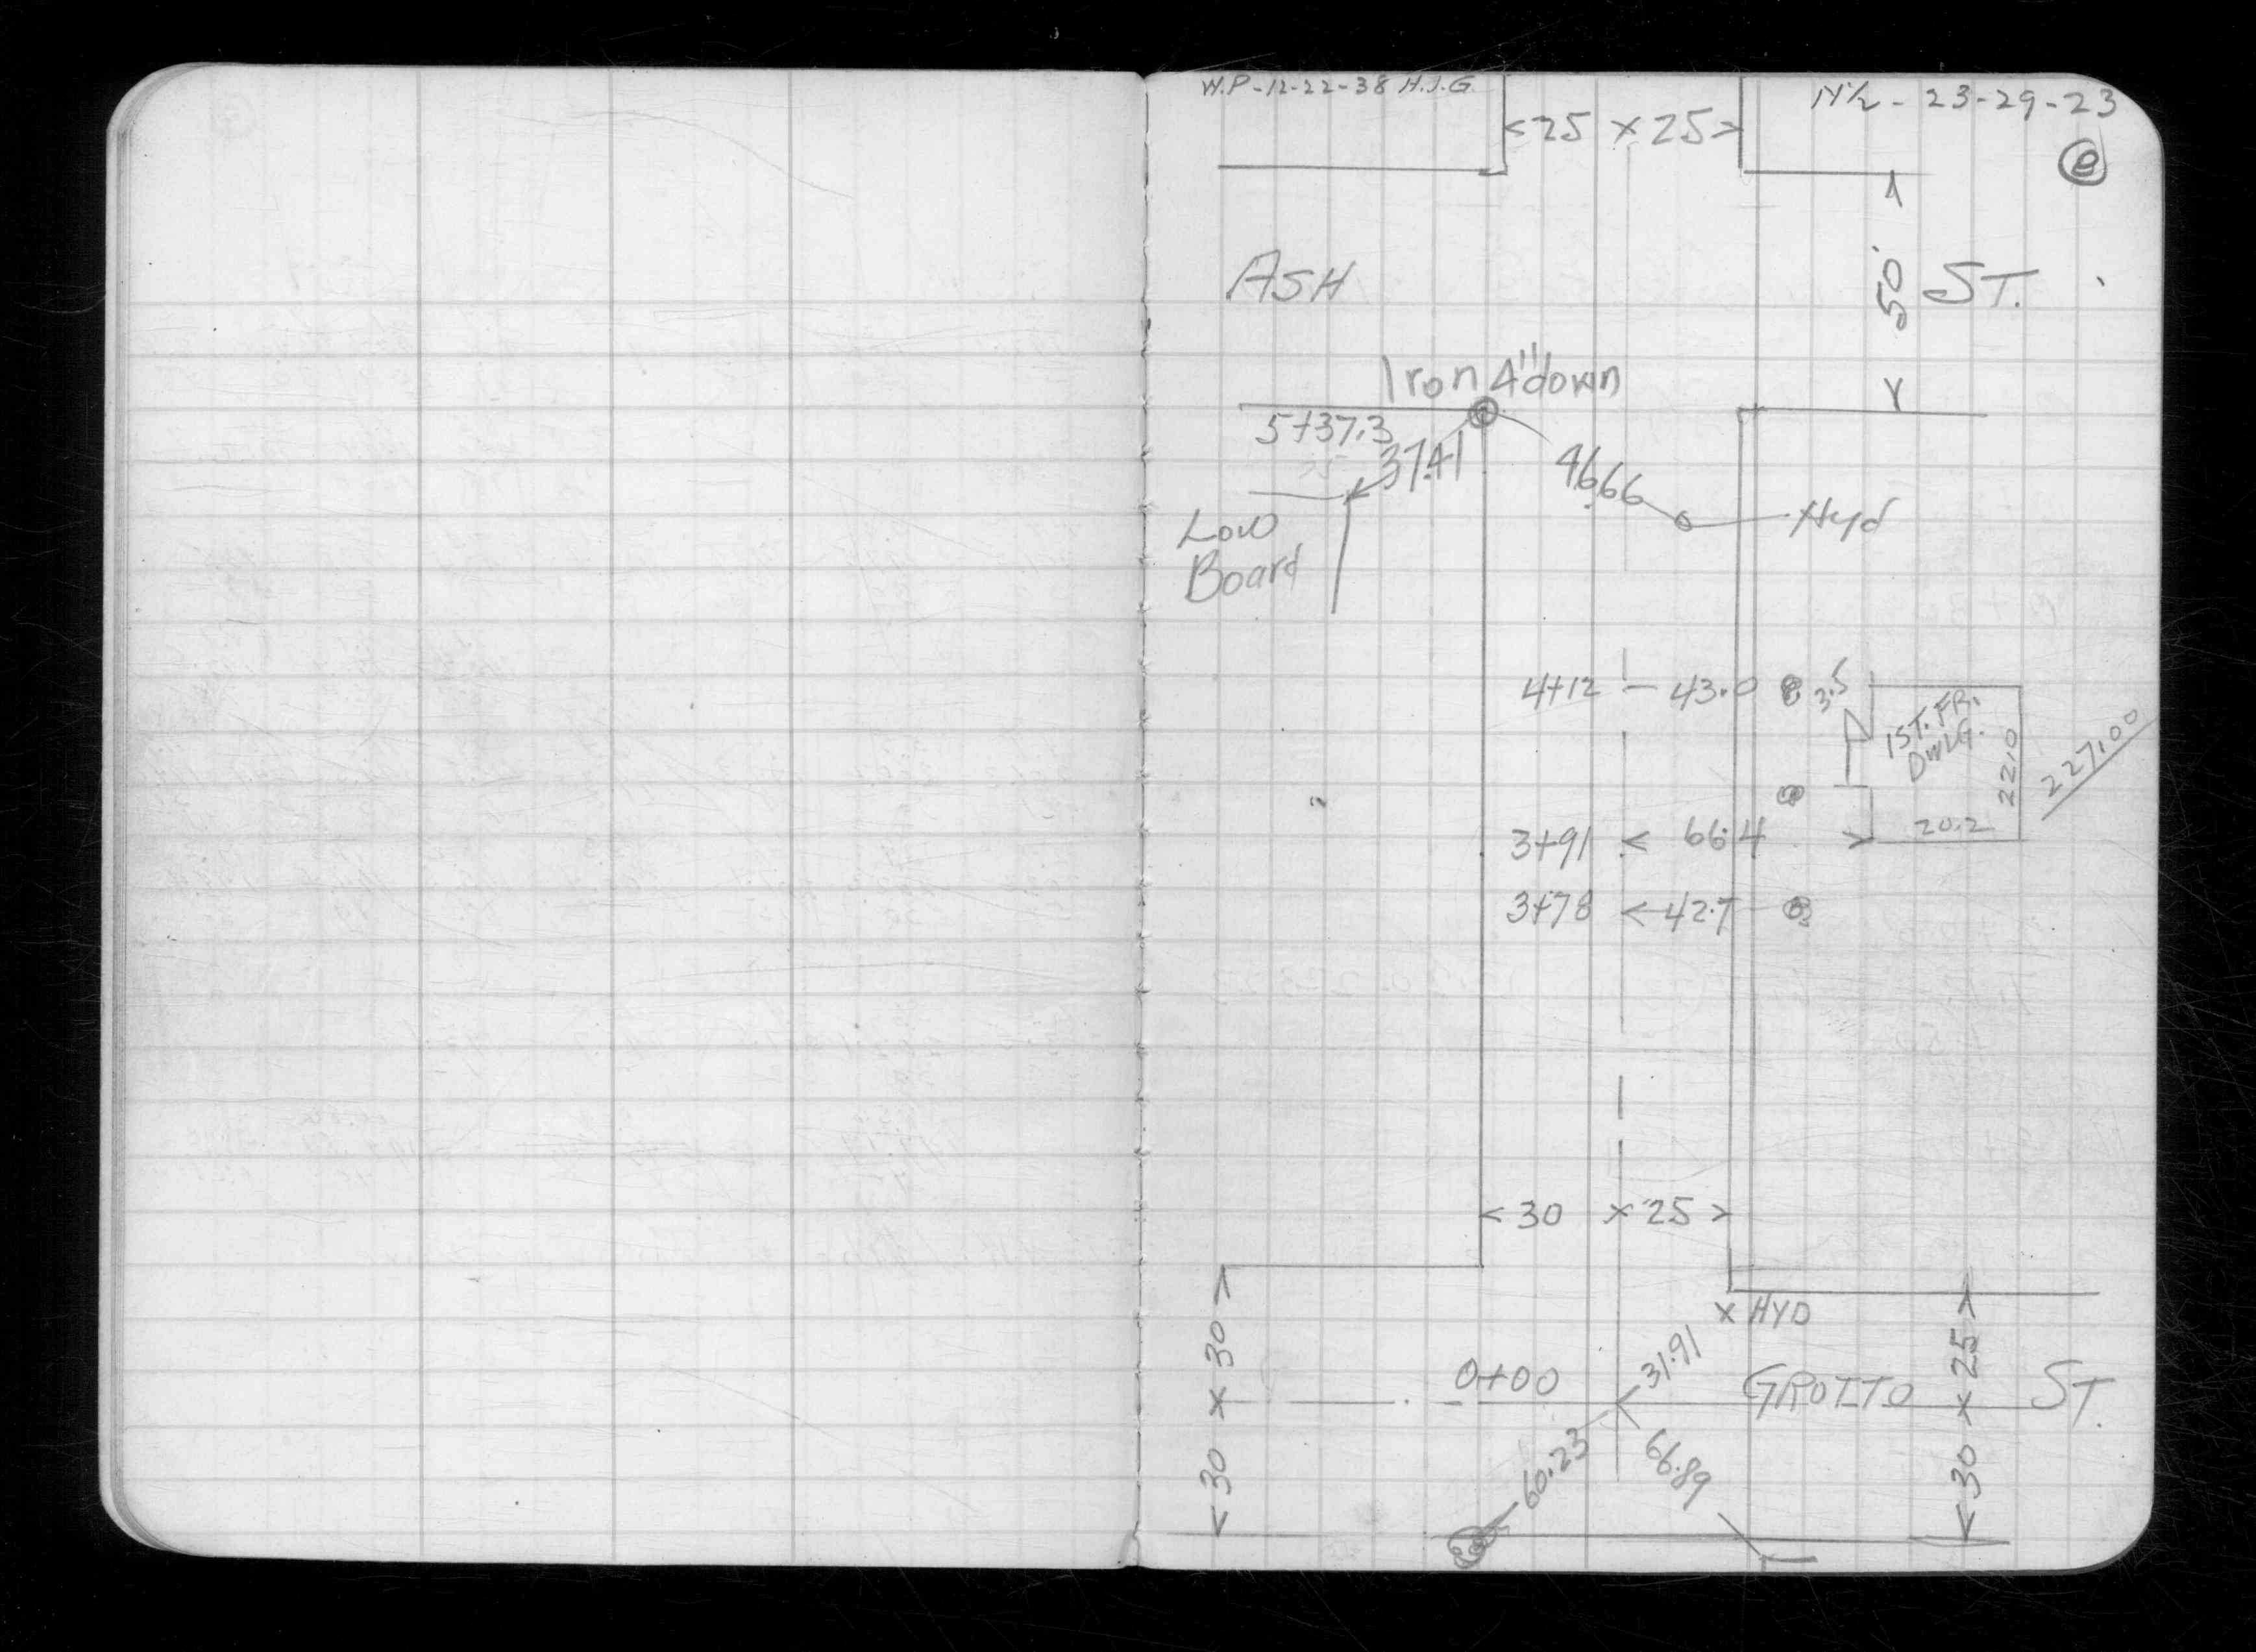 W.P-12-22-38 H.J.G.
N½ - 23-29-23
<25 x 25>
ASH
50'
ST.
Iron 4" down
5+37.3
37.41
46.66
Hyd
Low
Board
4+12 - 43.0
3.5
1 ST. FR.
DWLG.
22.0
227.00
20.2
3+91 < 66.4 >
3+78 < 42.7
<30 x 25>
x HYD
<30 x 30>
0+00
31.91
GROTTO
ST.
<30 x 25>
60.23
66.89